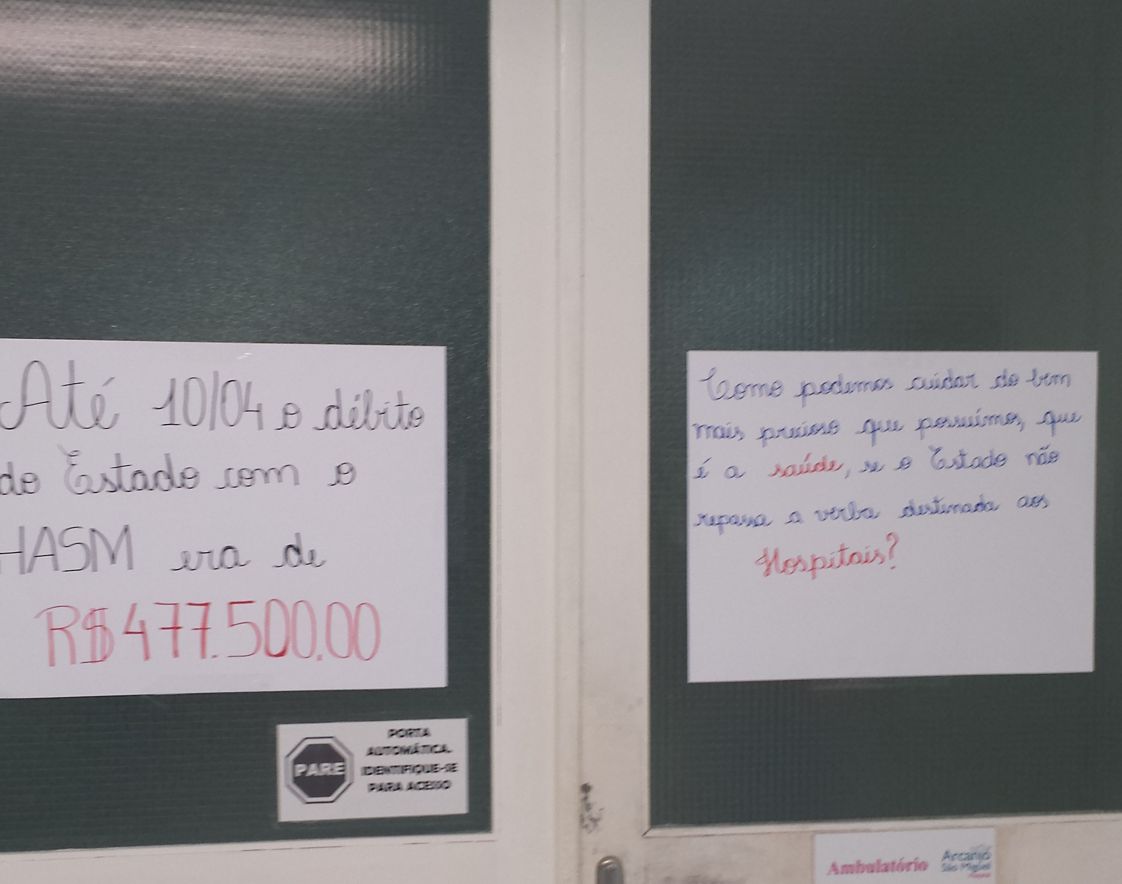 Até 10/04 o débito
do Estado com o
HASM era de
R$477.500.00
PORTA
AUTOMÁTICA.
IDENTIFIQUE-SE
PARA ACESSO
PARE
Como podemos cuidar do bem
mais precioso que possuímos, que
é a saúde, se o Estado não
repassa a verba destinada aos
Hospitais?
Ambulatório
Arcanjo
São Miguel